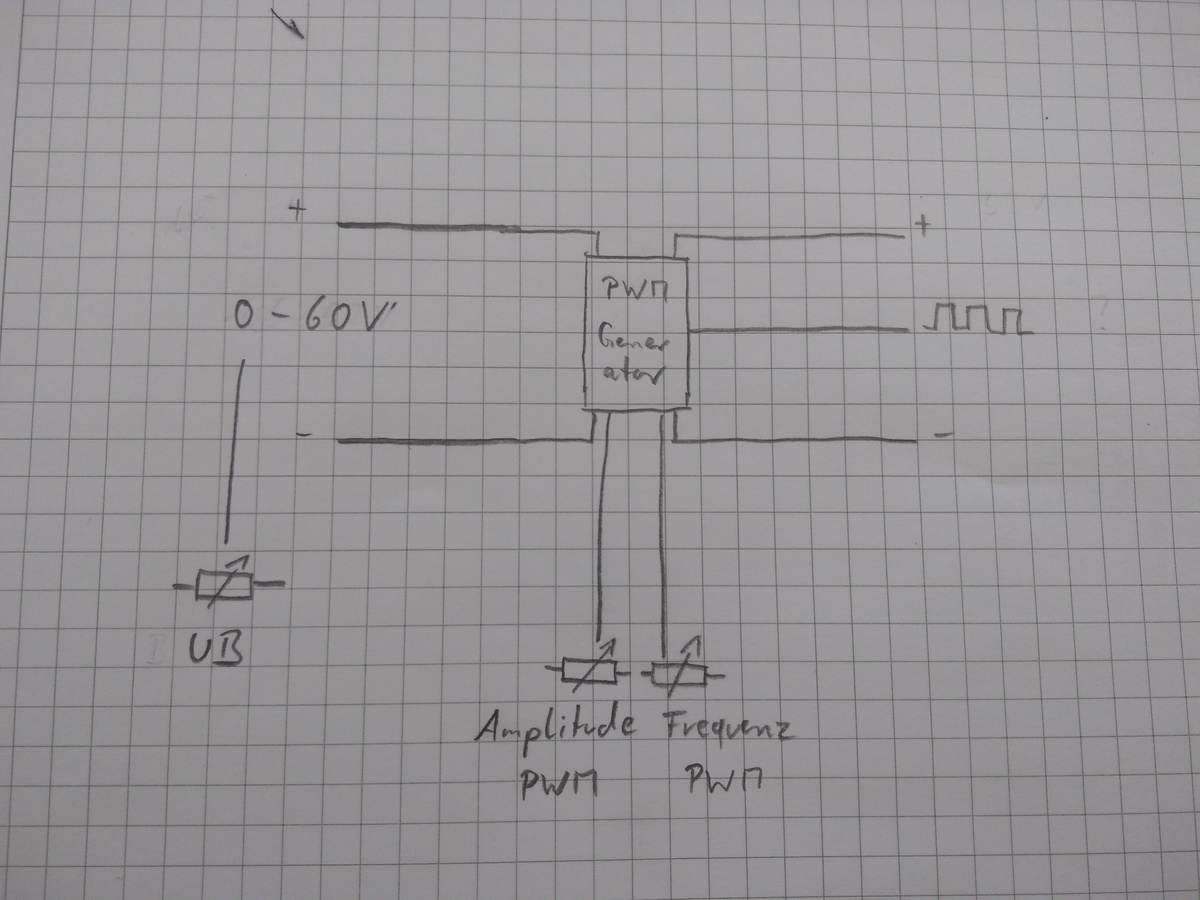 + +
PWM
0-60V
Gener
ator
- -
UB
Amplitude Frequenz
PWM PWM